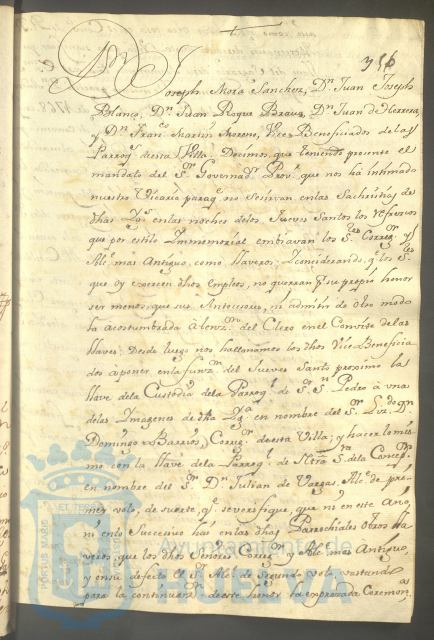 356
Dn Joseph Mora Sanchez, Dn Juan Joseph
Blanco, Dn Juan Roque Bravo, Dn Juan de Herrera,
y Dn Franco Martin Moreno, Vice Beneficiados de las
Parroqs desta Villa: Decimos, que teniendo presente el
mandato del Sr Governadr Provr que nos ha intimado
nuestro Vicario para qe no se sirvan en las Sachristias de
dhas Igs en las noches de los Jueves Santos los refrescos
que por estilo Immemorial embiavan los Sres Corregr y
Alce mas Antiguo, como llaveros; Considerando, q los Sres
que oy exercen dhos empleos, no querran pr su propio honor
ser menos que sus Antecesores, ni admitir de otro modo
la acostumbrada del Clero en el Convite de las
llaves; Desde luego nos hallanamos los dhos Vice Beneficia
dos a poner en la funcn del Jueves Santo proximo la
llave de la Custodia de la Parroql de Sr Sn Pedro a una
de las Imagenes de dha Iga en nombre del Sr Lizdo Dn
Domingo Barrios, Corregr de esta Villa; y hacer lo mis
mo con la llave de la Parroql de Ntra Sra de la Concepn
en nombre del Sr Dn Julian de Vargas, Alce de pri
mer voto, de suerte, qe se verifique, que ni en este Ano,
ni en lo Succesivo hai en las dhas Parrochiales otros lla
veros, que los dhos Señores Corregr y Alce mas Antiguo,
y en su defecto el Sr Alce de Segundo voto, bastando
para la continuon de este honor la expresada Ceremona
PORTUS MARIS
Ayuntamiento de
HUELVA